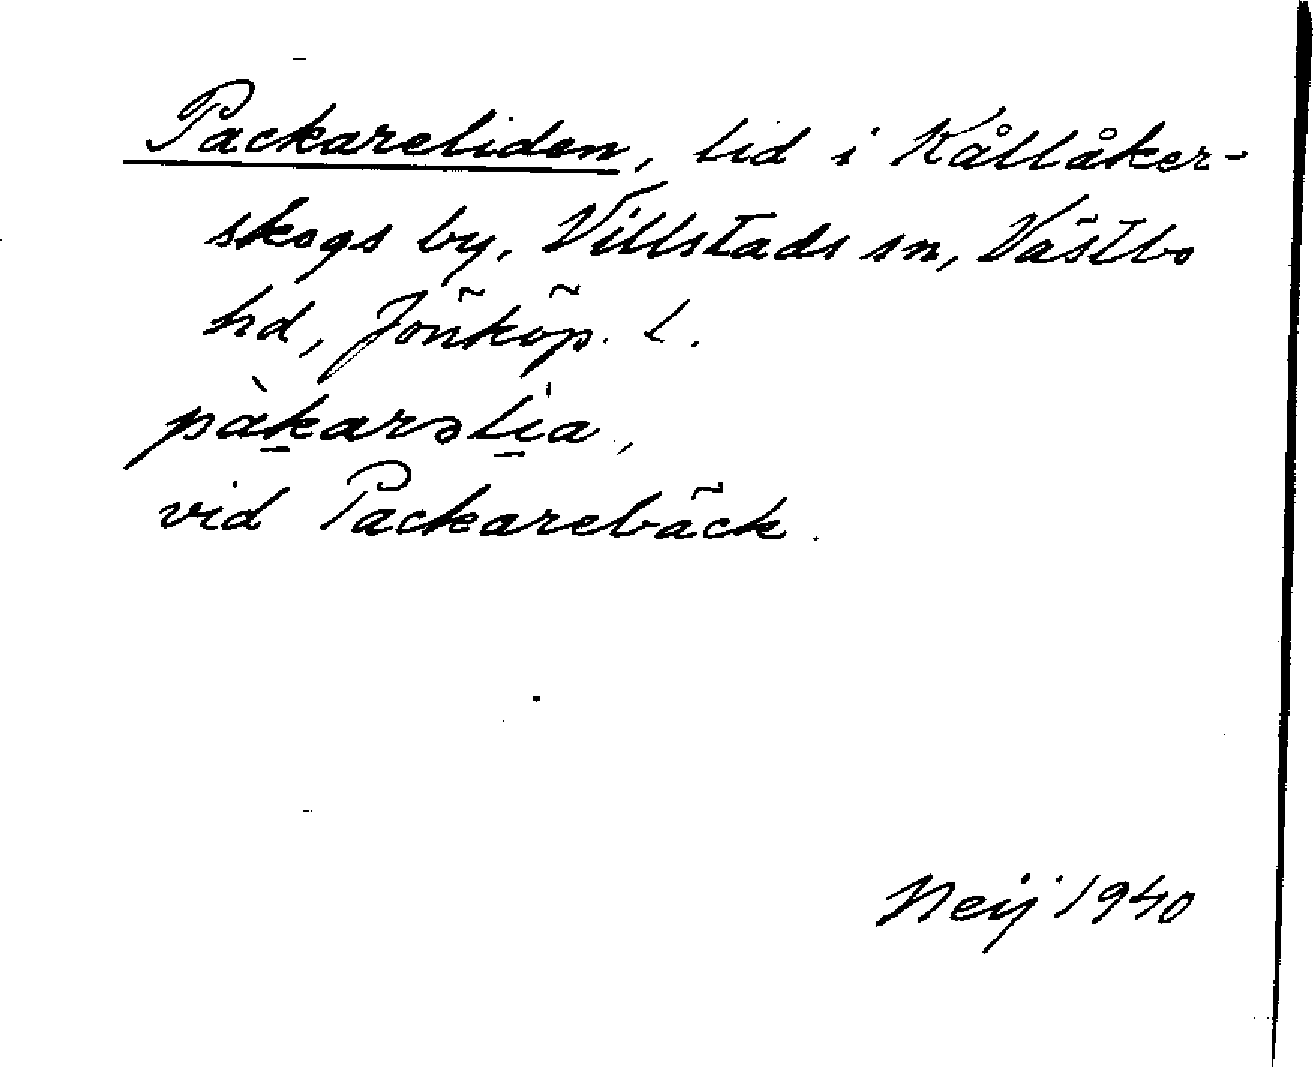 Packareliden, lid i Kållåker-
skogs by, Villstads sn, Västbo
hd, Jönköp. l.
pàk̲arəli̲a,
vid Packarebäck.
Neij 1940